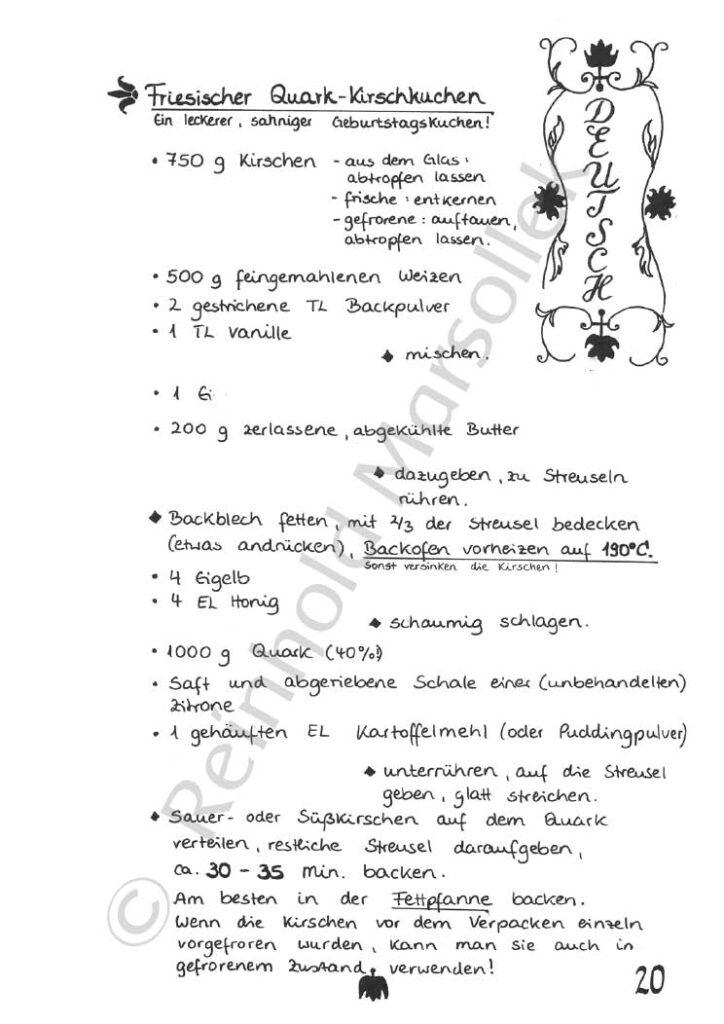 Friesischer Quark-Kirschkuchen
Ein leckerer, sahniger Geburtstagskuchen!
DEUTSCH
• 750 g Kirschen - aus dem Glas:
abtropfen lassen
- frische: entkernen
- gefrorene: auftauen,
abtropfen lassen.
• 500 g feingemahlenen Weizen
• 2 gestrichene TL Backpulver
• 1 TL Vanille
◆ mischen.
• 1 Ei
• 200 g zerlassene, abgekühlte Butter
◆ dazugeben, zu Streuseln
rühren.
◆ Backblech fetten, mit 2/3 der Streusel bedecken
(etwas andrücken), Backofen vorheizen auf 190°C.
Sonst versinken die Kirschen!
• 4 Eigelb
• 4 EL Honig
◆ schaumig schlagen.
• 1000 g Quark (40%)
• Saft und abgeriebene Schale einer (unbehandelten)
Zitrone
• 1 gehäuften EL Kartoffelmehl (oder Puddingpulver)
◆ unterrühren, auf die Streusel
geben, glatt streichen.
◆ Sauer- oder Süßkirschen auf dem Quark
verteilen, restliche Streusel daraufgeben,
ca. 30 - 35 Min. backen.
Am besten in der Fettpfanne backen.
Wenn die Kirschen vor dem Verpacken einzeln
vorgefroren wurden, kann man sie auch in
gefrorenem Zustand verwenden!
20
© Reinhold Marsollek